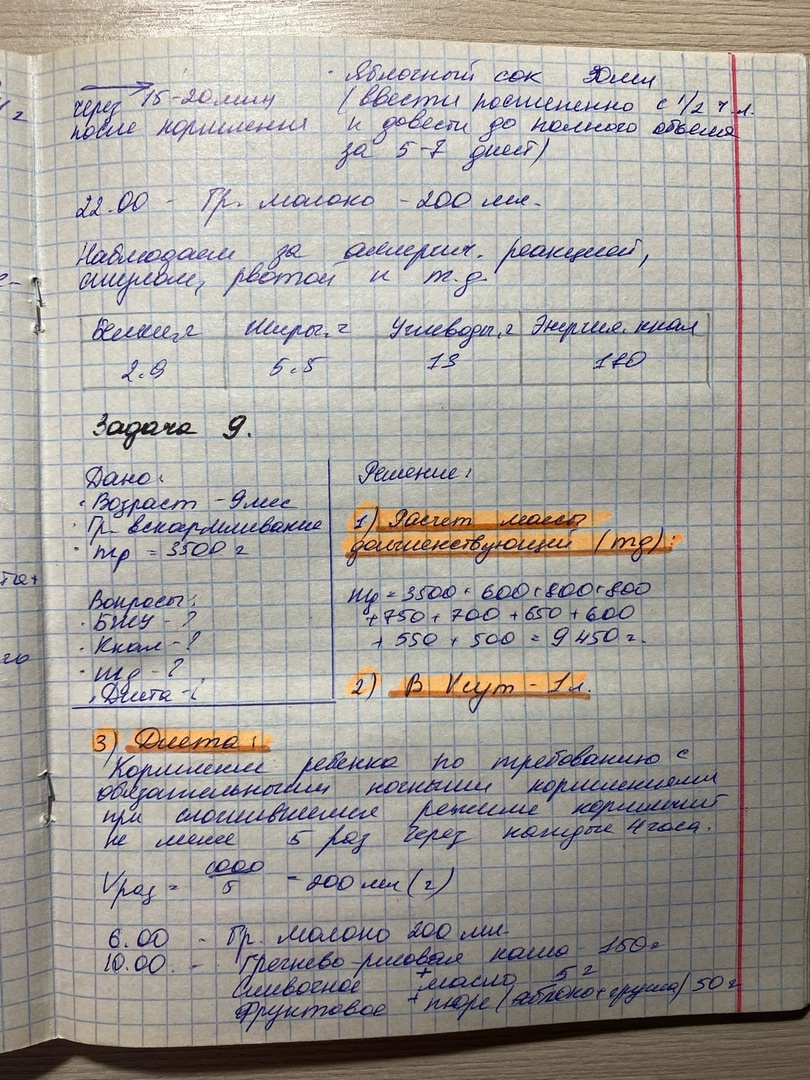 · Яблочный сок 30мл
через 15-20мин (ввести постепенно с 1/2 ч.л.
после кормления и довести до полного объема
за 5-7 дней)
22.00 - Гр. молоко - 200 мл.
Наблюдаем за аллергич. реакцией,
стулом, рвотой и т.д.
Белки,г Жиры,г Углеводы,г Энергия, ккал
2.9 5.5 13 110
Задача 9.
Дано: Решение:
· Возраст - 9мес
· Гр. вскармливание 1) Расчет массы
· mр = 3500 г долженствующей (mд):
mд = 3500 + 600 + 800 + 800
Вопросы: + 750 + 700 + 650 + 600
· БЖУ - ? + 550 + 500 = 9 450 г.
· Ккал - ?
· mд - ? 2) В Vсут - 1 л.
· Диета - ?
3) Диета:
Кормление ребенка по требованию с
обязательными ночными кормлениями
при сложившемся режиме кормлений
не менее 5 раз через каждые 4 часа.
Vраз = 1000/5 = 200 мл (г)
6.00 - Гр. молоко 200 мл.
10.00. - Гречнево-рисовая каша - 150 г
Сливочное + масло 5 г
Фруктовое + пюре (яблоко+груша) 50 г